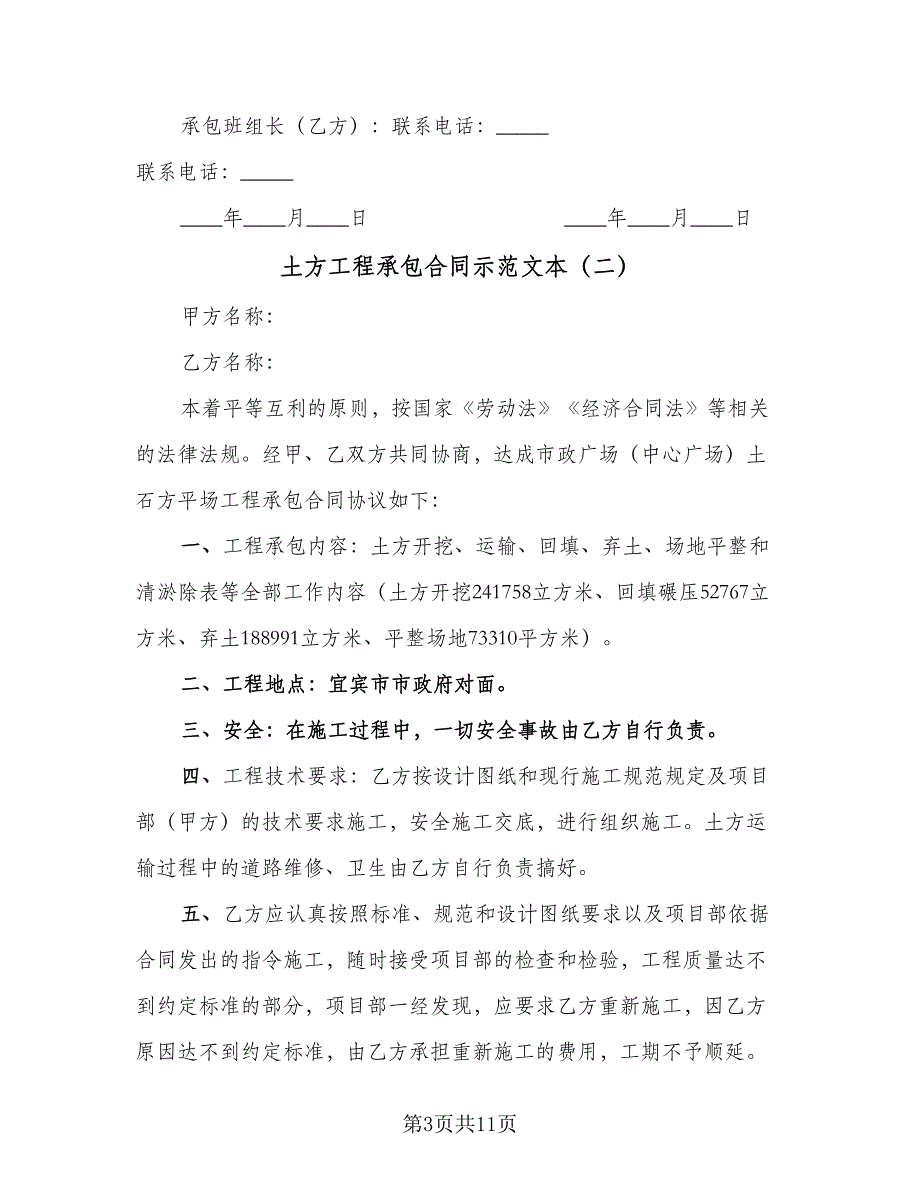 承包班组长（乙方）：联系电话：_____
联系电话：_____
____年____月____日 ____年____月____日
土方工程承包合同示范文本（二）
甲方名称：
乙方名称：
本着平等互利的原则，按国家《劳动法》《经济合同法》等相关
的法律法规。经甲、乙双方共同协商，达成市政广场（中心广场）土
石方平场工程承包合同协议如下：
一、工程承包内容：土方开挖、运输、回填、弃土、场地平整和
清淤除表等全部工作内容（土方开挖241758立方米、回填碾压52767立
方米、弃土188991立方米、平整场地73310平方米）。
二、工程地点：宜宾市市政府对面。
三、安全：在施工过程中，一切安全事故由乙方自行负责。
四、工程技术要求：乙方按设计图纸和现行施工规范规定及项目
部（甲方）的技术要求施工，安全施工交底，进行组织施工。土方运
输过程中的道路维修、卫生由乙方自行负责搞好。
五、乙方应认真按照标准、规范和设计图纸要求以及项目部依据
合同发出的指令施工，随时接受项目部的检查和检验，工程质量达不
到约定标准的部分，项目部一经发现，应要求乙方重新施工，因乙方
原因达不到约定标准，由乙方承担重新施工的费用，工期不予顺延。
第3页共11页